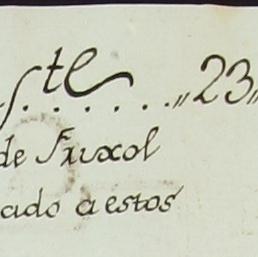 ste......"23"
de Frixol
ado a estos